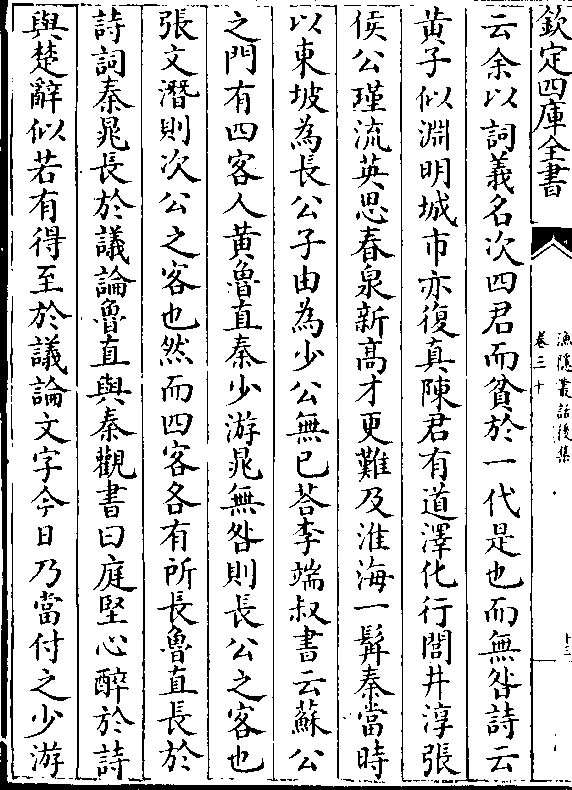 欽定四庫全書
漁隱叢話後集
卷三十
云余以詞義名次四君而貧於一代是也而無咎詩云
黄子似淵明城市亦復真陳君有道澤化行閭井淳張
侯公瑾流英思春泉新高才更難及淮海一髯秦當時
以東坡為長公子由為少公無已荅李端叔書云蘇公
之門有四客人黄魯直秦少游晁無咎則長公之客也
張文潛則次公之客也然而四客各有所長魯直長於
詩詞秦晁長於議論魯直與秦觀書曰庭堅心醉於詩
與楚辭似若有得至於議論文字今日乃當付之少游